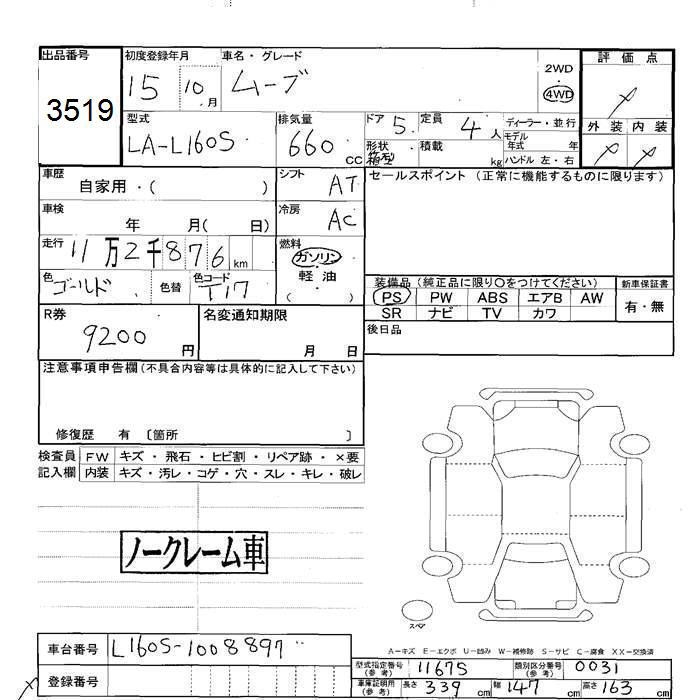 出品番号 初度登録年月 車名・グレード 評価点
3519 15 10月 ムーブ 2WD 4WD
型式 排気量 ドア 定員 ディーラー・並行 外装 内装
LA-L160S 660cc 5 4人 モデル年式 年
形状 積載 kg ハンドル 左・右
車歴 自家用・( ) シフト AT セールスポイント(正常に機能するものに限ります)
車検 年 月( 日) 冷房 AC
走行 11万2千876km 燃料 ガソリン
軽油
( )
色 ゴールド 色替 色コード T17
装備品(純正品に限り○をつけてください) 新車保証書
PS PW ABS エアB AW 有・無
SR ナビ TV カワ
R券 9200円 名変通知期限 月 日 後日品
注意事項申告欄(不具合内容等は具体的に記入して下さい)
修復歴 有 〔箇所 〕
検査員 FW キズ・飛石・ヒビ割・リペア跡・×要
記入欄 内装 キズ・汚レ・コゲ・穴・スレ・キレ・破レ
ノークレーム車
スペア
A-キズ E-エクボ U-凹み W-補修跡 S-サビ C-腐食 XX-交換済
車台番号 L160S-1008897
登録番号
型式指定番号(参考) 11675 類別区分番号(参考) 0031
車庫証明用(参考) 長さ 339cm 幅 147cm 高さ 163cm